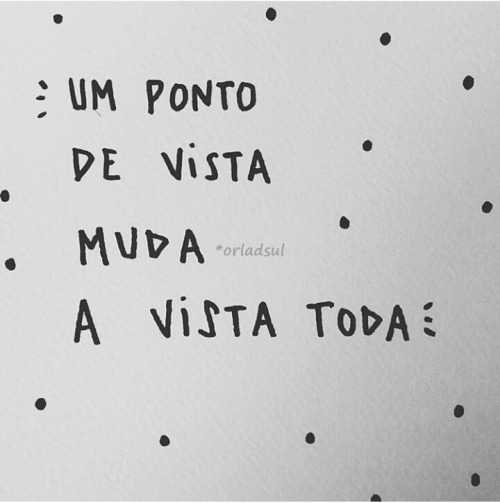 UM PONTO
DE VISTA
MUDA
*orladsul
A VISTA TODA